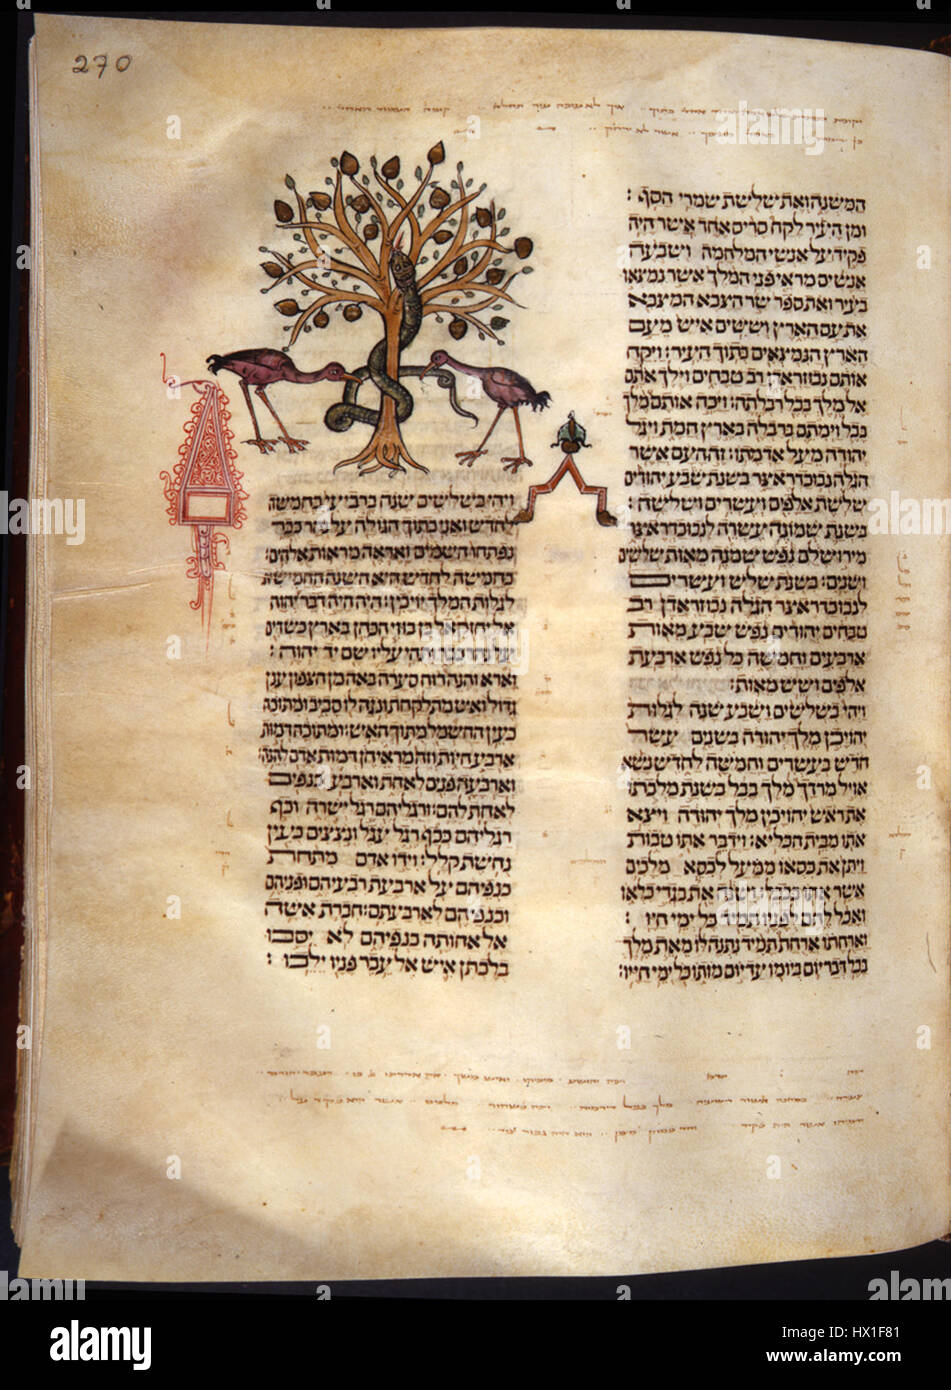 270
המשנה ואת שלישת שמרי הסף :
ומן העיר לקח סריס אחד אשר היה
פקיד על אנשי המלחמה ושבעה
אנשים מראי פני המלך אשר נמצאו
בעיר ואת ספר שר הצבא המצבא
את עם הארץ וששים איש מעם
הארץ הנמצאים בתוך העיר : ויקח
אותם נבוזראדן רב טבחים וילך אתם
אל מלך בבל רבלתה : ויכה אותם מלך
בבל וימתם ברבלה בארץ חמת ויגל
יהודה מעל אדמתו : זה העם אשר
הגלה נבוכדראצר בשנת שבע יהודים
שלשת אלפים ועשרים ושלשה :
בשנת שמונה עשרה לנבוכדראצר
מירושלם נפש שמנה מאות שלשים
ושנים : בשנת שלש ועשרים
לנבוכדראצר הגלה נבוזראדן רב
טבחים יהודים נפש שבע מאות
ארבעים וחמשה כל נפש ארבעת
אלפים ושש מאות :
ויהי בשלשים ושבע שנה לגלות
יהויכין מלך יהודה בשנים עשר
חדש בעשרים וחמשה לחדש נשא
אויל מרדך מלך בבל בשנת מלכתו
את ראש יהויכין מלך יהודה ויצא
אתו מבית הכליא : וידבר אתו טבות
ויתן את כסאו ממעל לכסא מלכים
אשר אתו בבבל : ושנה את בגדי כלאו
ואכל לחם לפניו תמיד כל ימי חייו :
וארחתו ארחת תמיד נתנה לו מאת מלך
בבל דבר יום ביומו עד יום מותו כל ימי חייו :
ויהי בשלשים שנה ברביעי בחמשה
לחדש ואני בתוך הגולה על נהר כבר
נפתחו השמים ואראה מראות אלהים :
בחמשה לחדש היא השנה החמישית
לגלות המלך יויכין : היה היה דבר יהוה
אל יחזקאל בן בוזי הכהן בארץ כשדים
על נהר כבר ותהי עליו שם יד יהוה :
וארא והנה רוח סערה באה מן הצפון ענן
גדול ואש מתלקחת ונגה לו סביב ומתוכה
כעין החשמל מתוך האש : ומתוכה דמות
ארבע חיות וזה מראיהן דמות אדם להנה :
וארבעה פנים לאחת וארבע כנפים
לאחת להם : ורגליהם רגל ישרה וכף
רגליהם ככף רגל עגל ונצצים כעין
נחשת קלל : וידו אדם מתחת
כנפיהם על ארבעת רבעיהם ופניהם
וכנפיהם לארבעתם : חברת אשה
אל אחותה כנפיהם לא יסבו
בלכתן איש אל עבר פניו ילכו :
alamy
HX1F81
www.alamy.com